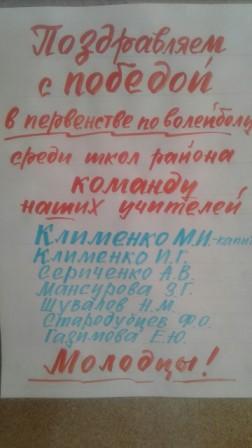 Поздравляем
с победой
в первенстве по волейболу
среди школ района
команду
наших учителей
Клименко М.И.-капит
Клименко И.Г.
Сериченко А.В.
Мансурова З.Г.
Шувалов Н.М.
Стародубцев Ф.О.
Газимова Е.Ю.
Молодцы!